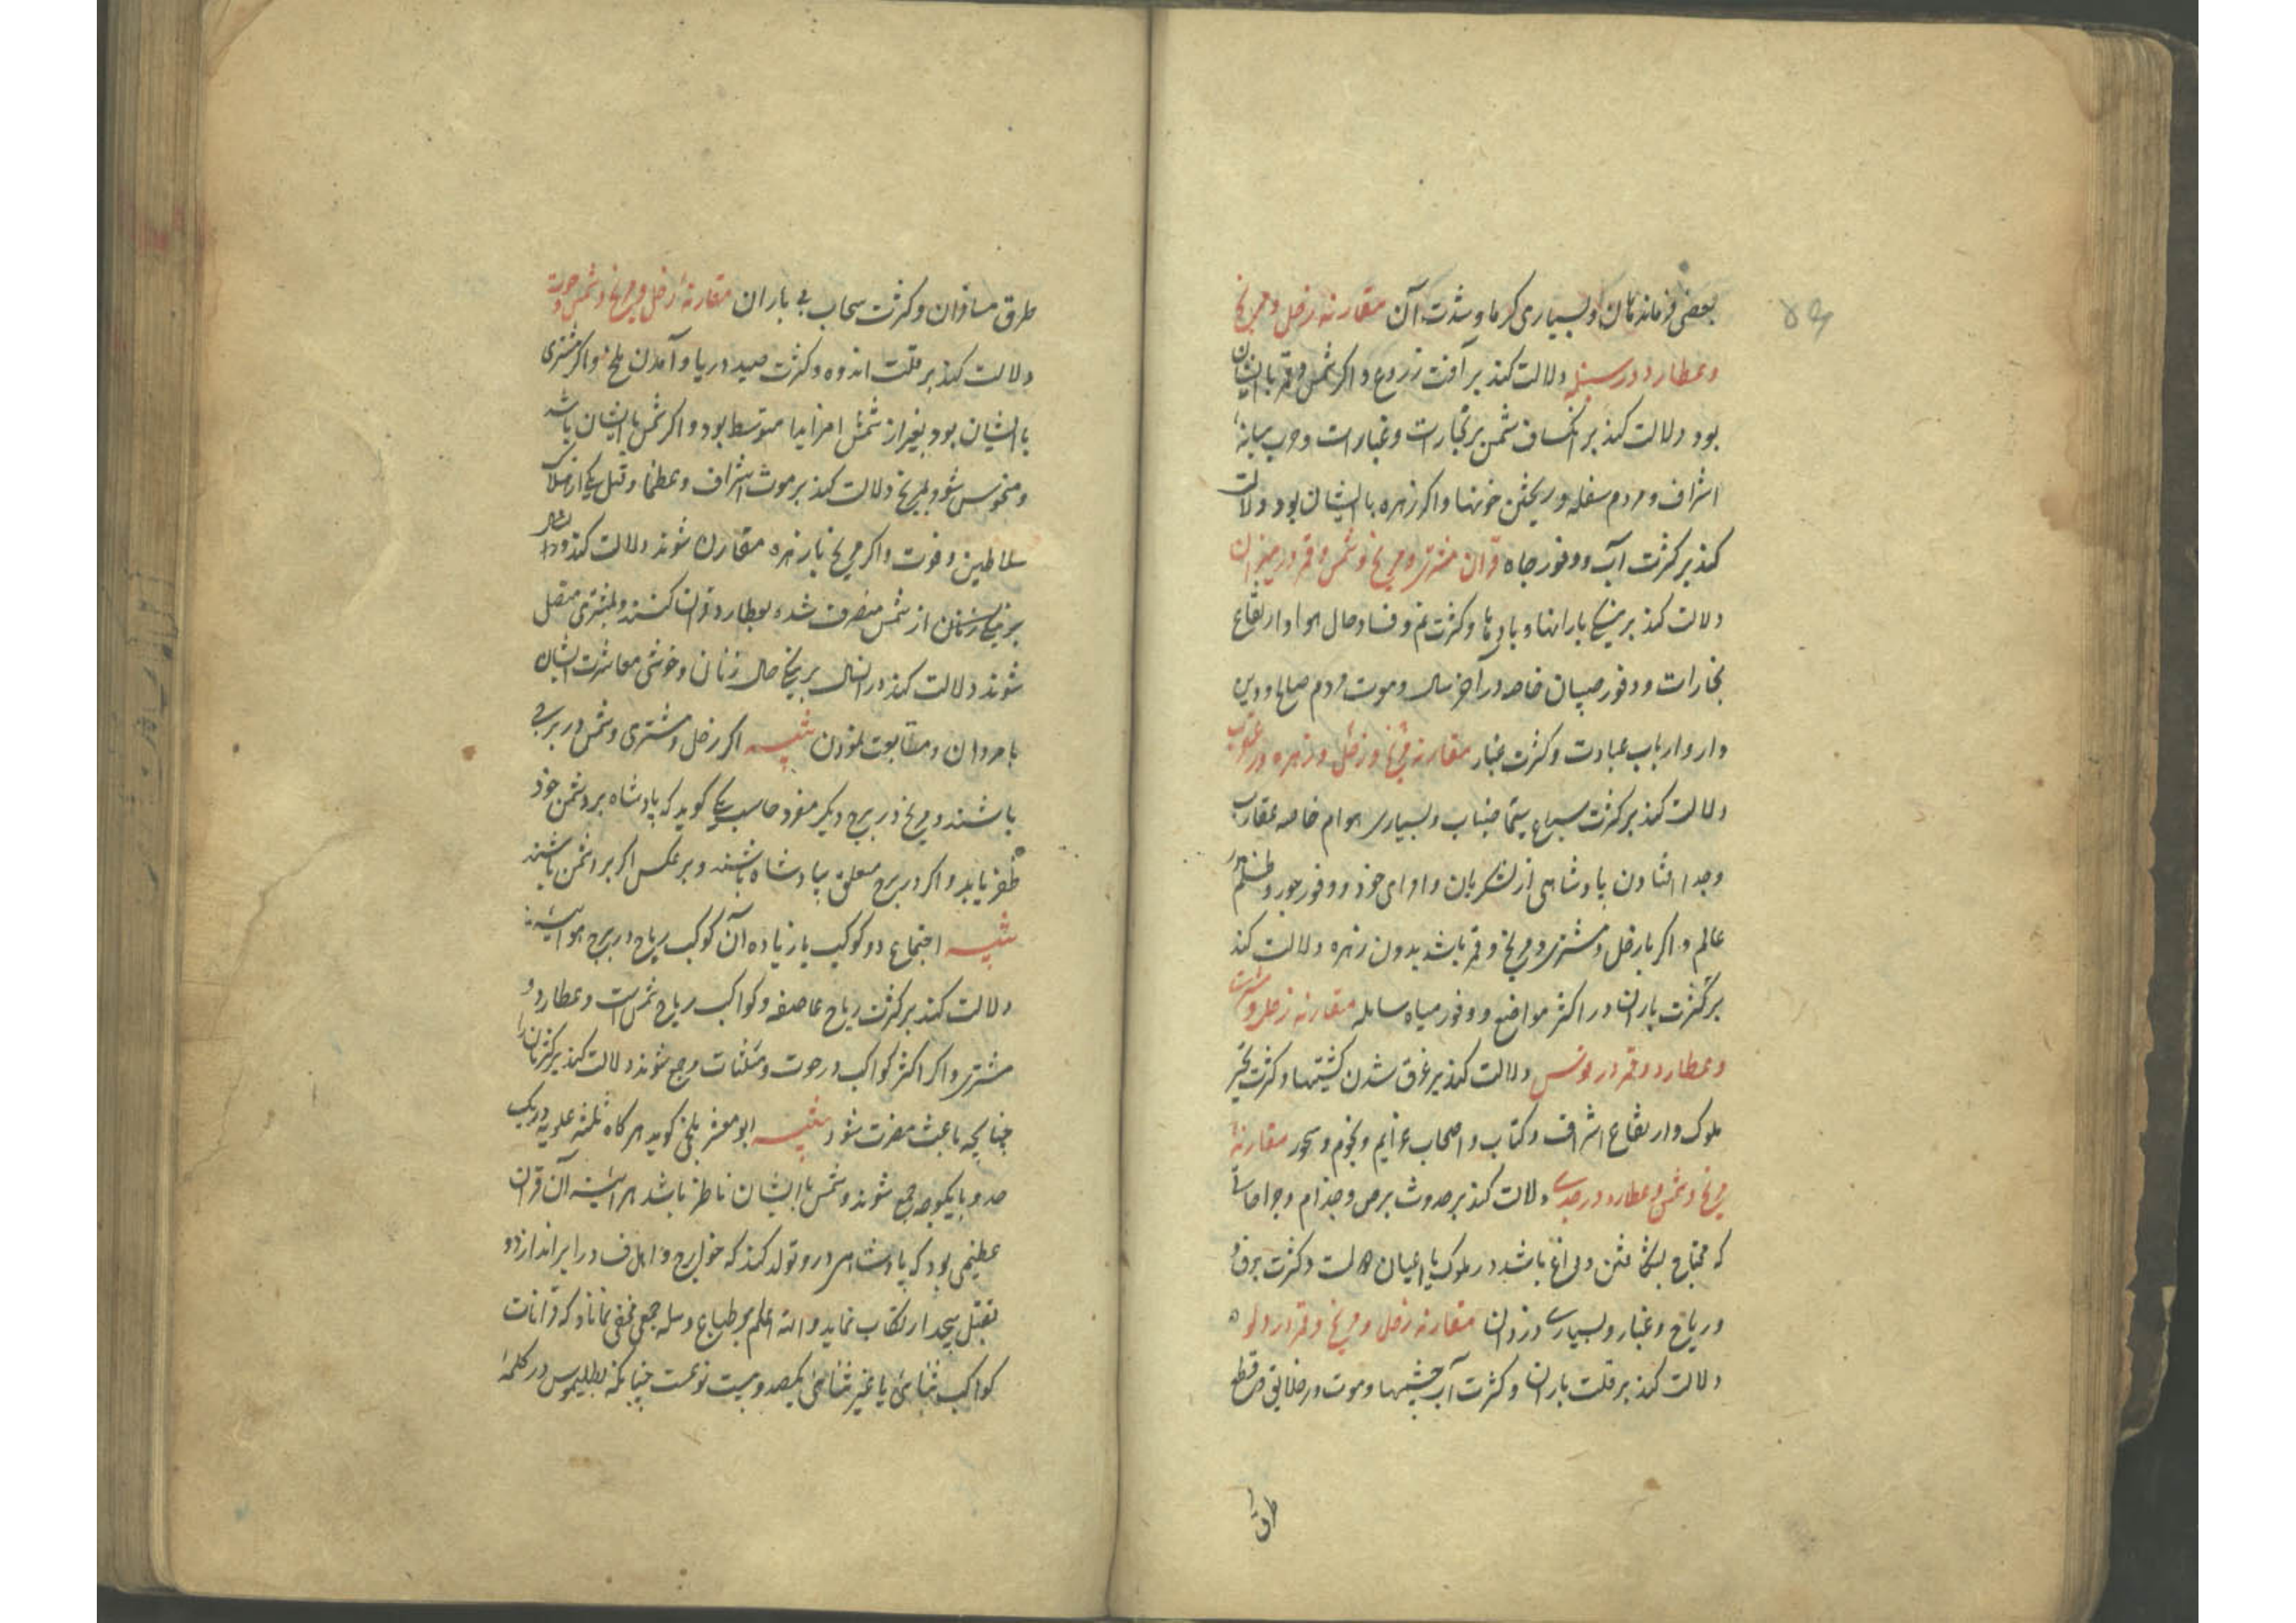 بعضی فرماندهان و بسیاری کرما و شدت آن مقارنه زحل و مریخ
وعطارد در سنبله دلالت کند بر آفت زروع و اکر شمس و قمر با ایشان
بود دلالت کند بر انکساف شمس بر تجارات و غبارات و حرب میانه
اشراف و مردم سفله و ریختن خونها و اکر زهره با ایشان بود دلالت
کند بر کثرت آب و وفور جاه قران مشتری و مریخ و شمس و قمر در میزان
دلالت کند بر نیکی بارانها و بادها و کثرت نم و فساد حال هوا و ارتفاع
بخارات و وفور صبیان خاصه در آخر سال و موت مردم صالح و دین
دار و ارباب عبادت و کثرت غبار مقارنه مریخ و زحل و زهره در عقرب
دلالت کند بر کثرت سباع سیما ضباب و بسیاری هوام خاصه عقارب
وجدا افتادن پادشاهی از لشکریان و اوای خود و وفور جور و ظلم در
عالم و اکر با زحل و مشتری و مریخ و قمر باشد بدون زهره دلالت کند
بر کثرت باران در اکثر مواضع و وفور میاه سایله مقارنه زحل و مشتری
وعطارد و قمر در قوس دلالت کند بر غرق شدن کشتیها و کثرت تحیر
ملوک و ارتفاع اشراف و کتاب و اصحاب عزایم و نجوم و سحور مقارنهٔ
مریخ و شمس و عطارد در جدی دلالت کند بر حدوث برص و جذام و جراحاتی
که محتاج بشکافتن و داغ باشد در ملوک یا اعیان دولت و کثرت برف
و ریاح و غبار و بسیاری دزدان مقارنه زحل و مریخ و قمر در دلو
دلالت کند بر قلت باران و کثرت آب چشمها و موت در خلایق و قطع
طرق
طرق مسافران و کثرت سحاب بی باران مقارنهٔ زحل و مریخ و شمس در حوت
دلالت کند بر قلت اندوه و کثرت صید دریا و آمدن ملخ و اکر مشتری
با ایشان بود بغیر از شمس امر اندا متوسط بود و اکر شمس با ایشان باشد
و منحوس شود بمریخ دلالت کند بر موت اشراف و عظما و قتل یکی از ملائک
سلاطین و فوت و اکر مریخ با زهره مقارن شوند دلالت کند
بر نیکی زنان از شمس منصرف شده بعطارد قران کنند و بمشتری متصل
شوند دلالت کند در انسال بر نیکی حال زنان و خوشی معاشرت ایشان
با مردان و متابعت نمودن تنبیه اکر زحل و مشتری و شمس در برجی
باشند و مریخ در برج دیکر مفرد حاسب یکی کوید که پادشاه بر دشمن خود
ظفر یابد و اکر در برج متعلق بپادشاه باشند و بر عکس اکر بر دشمن باشند
تنبیه اجتماع دو کوکب یا زیاده آن کوکب ریاح در برج هوائیه
دلالت کند بر کثرت ریاح عاصفه و کواکب ریاح شمس است و عطارد و
مشتری و اکر اکثر کواکب در حوت و مثلثات وی جمع شوند دلالت کند بر کثرت باران
چنانچه باعث مضرت شود تنبیه ابو معشر بلخی کوید هر کاه ثلثه علویه در یک
حد و یا یکوجه جمع شوند و شمس با ایشان ناظر باشد هر آینه آن قران
عظیمی بود که پادشاهی در و تولد کند که خوارج و اهل فساد را براندازد و
بقتل بیحد ارتکاب نماید والله اعلم بر طباع وسله جمعی مخفی نماند که قرانات
کواکب ثنائی یا غیر ثنائی یکصد و بیست نوعست چنانکه بطلیموس در کلمهٔ